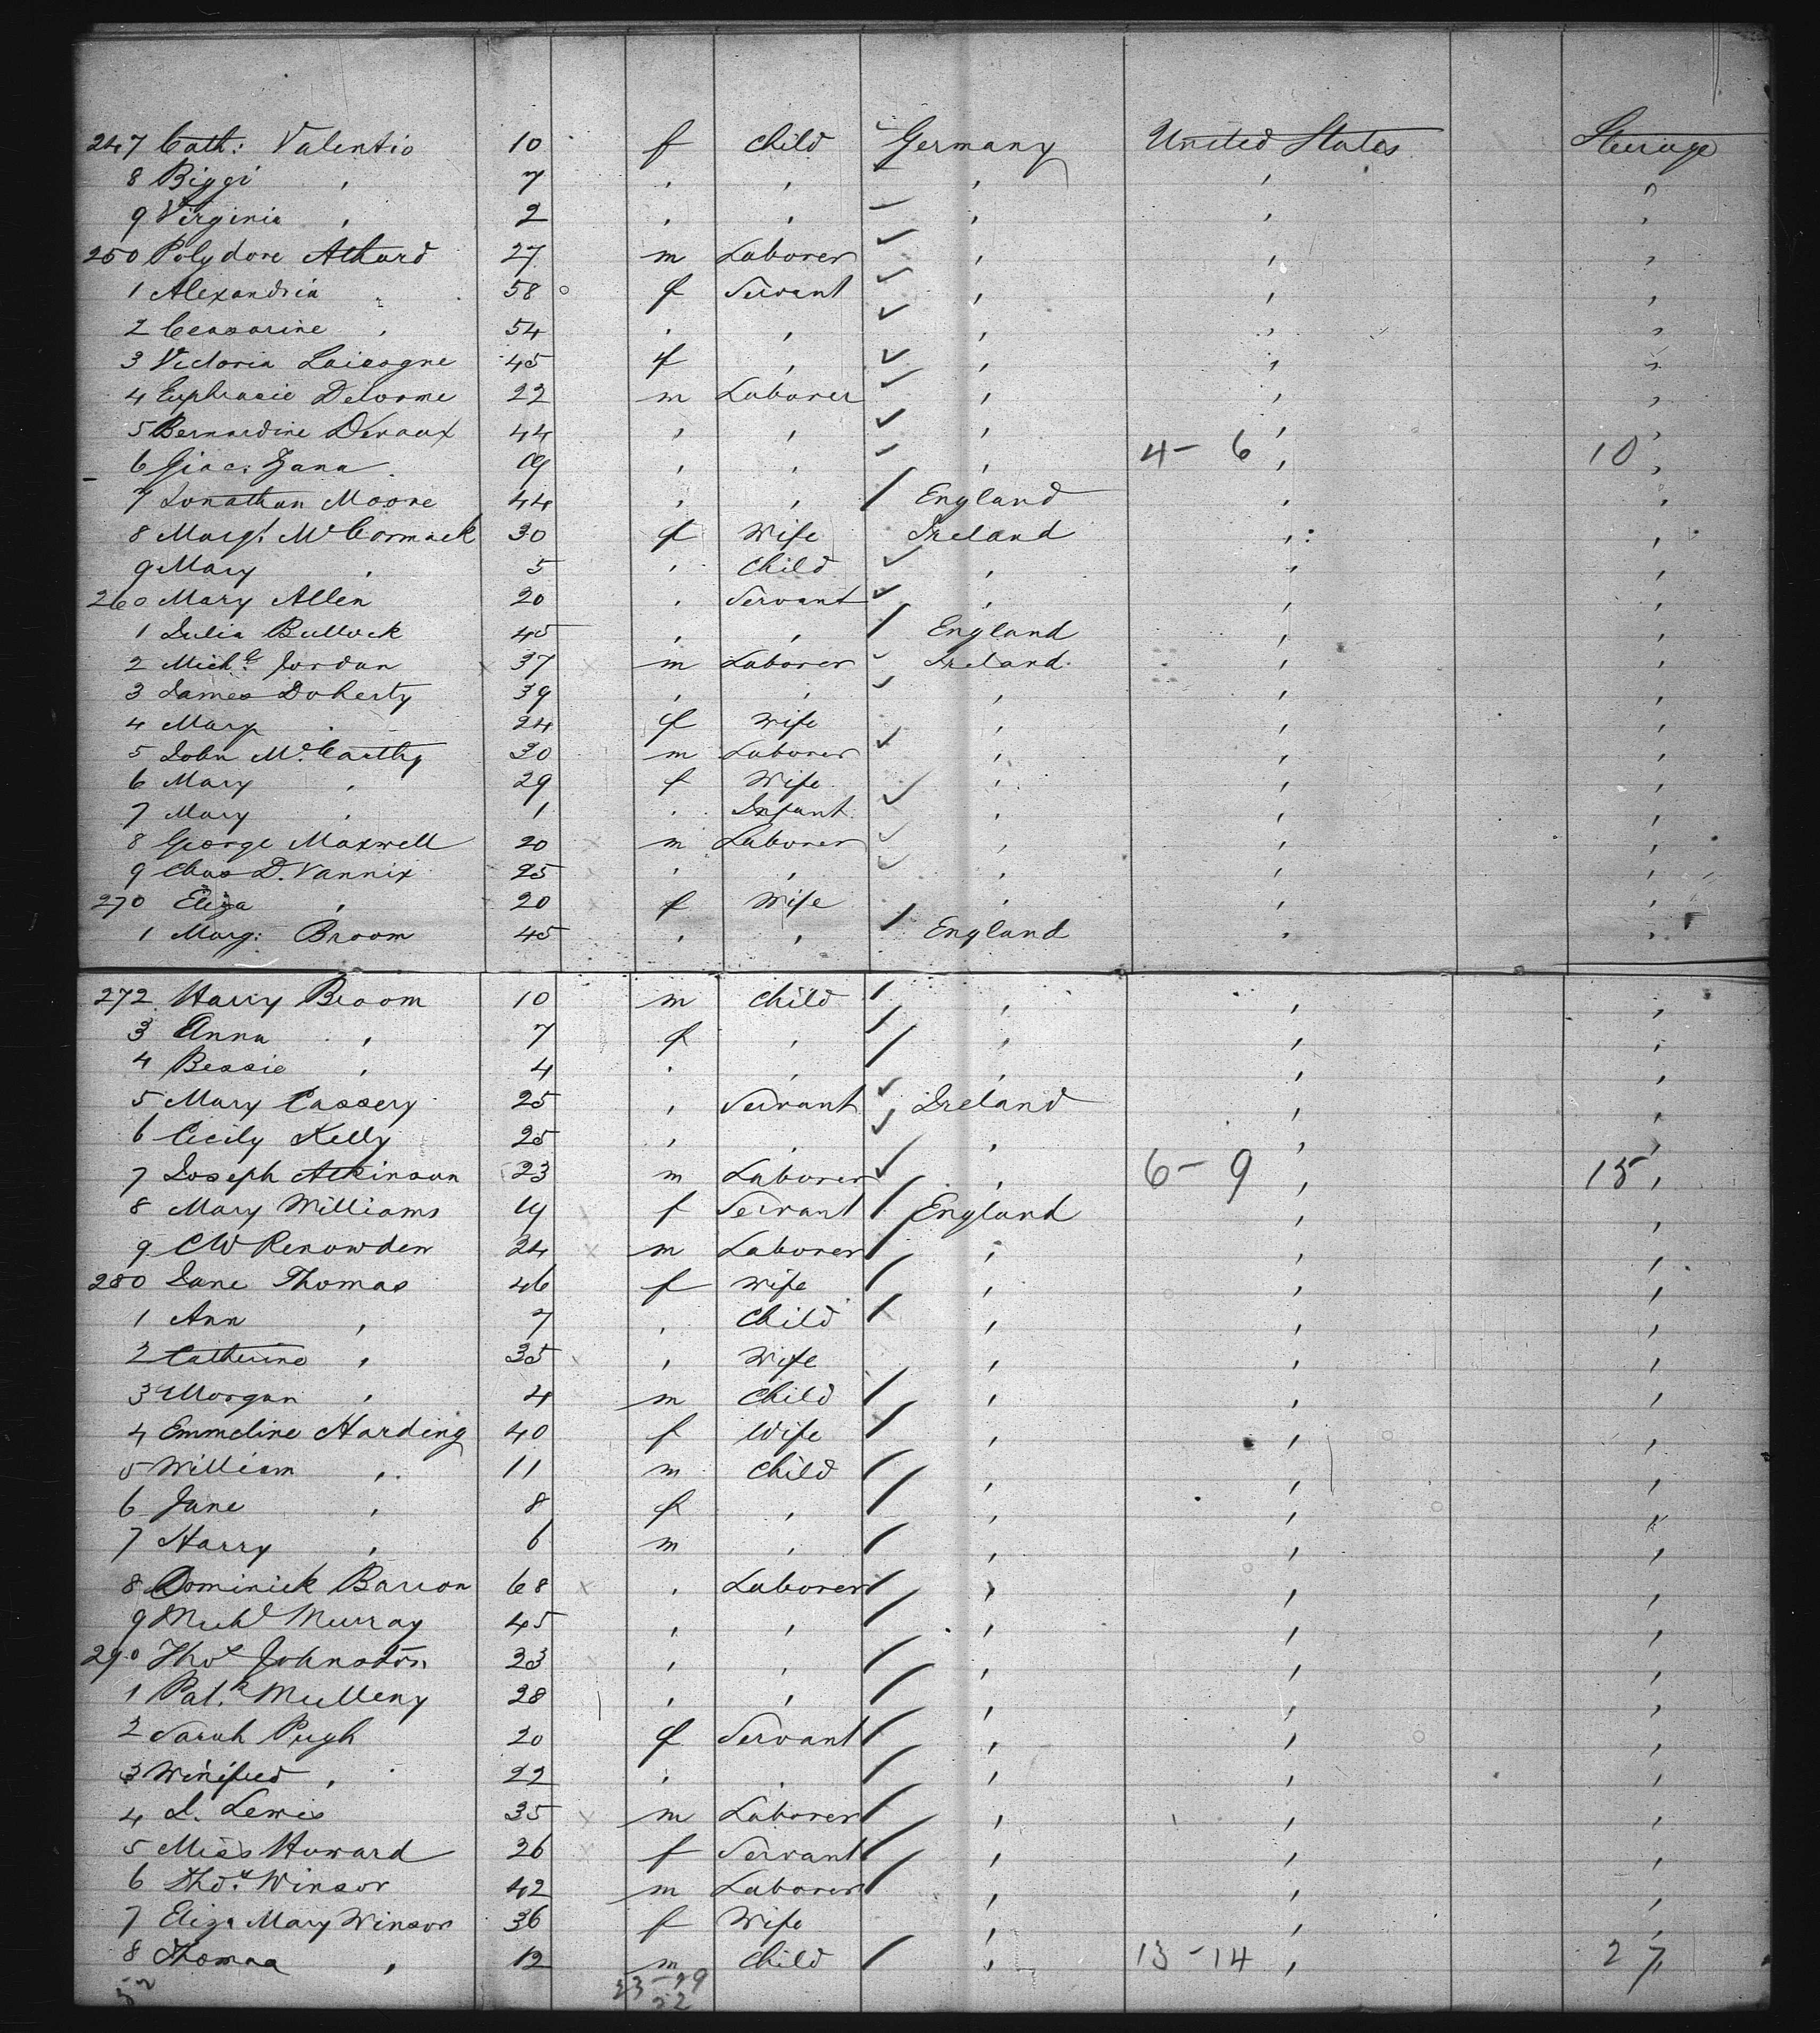 247 Cath: Valentio 10 f Child Germany United States Steerage
8 Biggi , 7 , , , , ,
9 Virginia , 2 , , , , ,
250 Polydore Athard 27 m Laborer , , ,
1 Alexandria , 58 f Servant , , ,
2 Ceasarine , 54 , , , , ,
3 Victoria Laisogne 45 f , , , ,
4 Euphrasie Delorme 22 m Laborer , , ,
5 Bernardine Devaux 44 , , , , ,
6 Giac: Zana 19 , , , 4 - 6 , 10 ,
7 Jonathan Moore 44 , , England , ,
8 Margt McCormack 30 f Wife Ireland , ,
9 Mary , 5 , Child , , ,
260 Mary Allen 20 , Servant , , ,
1 Julia Bullock 45 , , England , ,
2 Michl Jordan 37 m Laborer Ireland , ,
3 James Doherty 39 , , , , ,
4 Mary , 24 f Wife , , ,
5 John McCarthy 30 m Laborer , , ,
6 Mary , 29 f Wife , , ,
7 Mary , 1 , Infant , , ,
8 George Maxwell 20 m Laborer , , ,
9 Chas D. Vannix 25 , , , , ,
270 Eliza , 20 f Wife , , ,
1 Marg: Broom 45 , , England , ,
272 Harry Broom 10 m Child , , ,
3 Anna , 7 f , , , ,
4 Bessie , 4 , , , , ,
5 Mary Cassery 25 , Servant Ireland , ,
6 Cecily Kelly 25 , , , , ,
7 Joseph Atkinson 23 m Laborer , 6 - 9 , 15 ,
8 Mary Williams 19 f Servant England , ,
9 CW Renowden 24 m Laborer , , ,
280 Jane Thomas 46 f Wife , , ,
1 Ann , 7 , Child , , ,
2 Catherine , 35 , Wife , , ,
3 Morgan , 4 m Child , , ,
4 Emmeline Harding 40 f Wife , , ,
5 William , 11 m Child , , ,
6 Jane , 8 f , , , ,
7 Harry , 6 m , , , ,
8 Dominick Barron 68 , Laborer , , ,
9 Michl Murray 45 , , , , ,
290 Thos Johnston 23 , , , , ,
1 Patk Mulleny 28 , , , , ,
2 Sarah Pugh 20 f Servant , , ,
3 Winifred , 22 , , , , ,
4 J. Lewis 35 m Laborer , , ,
5 Miss Howard 26 f Servant , , ,
6 Thos Winsor 42 m Laborer , , ,
7 Eliza Mary Winsor 36 f Wife , , ,
8 Thomas , 12 m Child , 13 - 14 , 27 ,
52 23 - 29
52